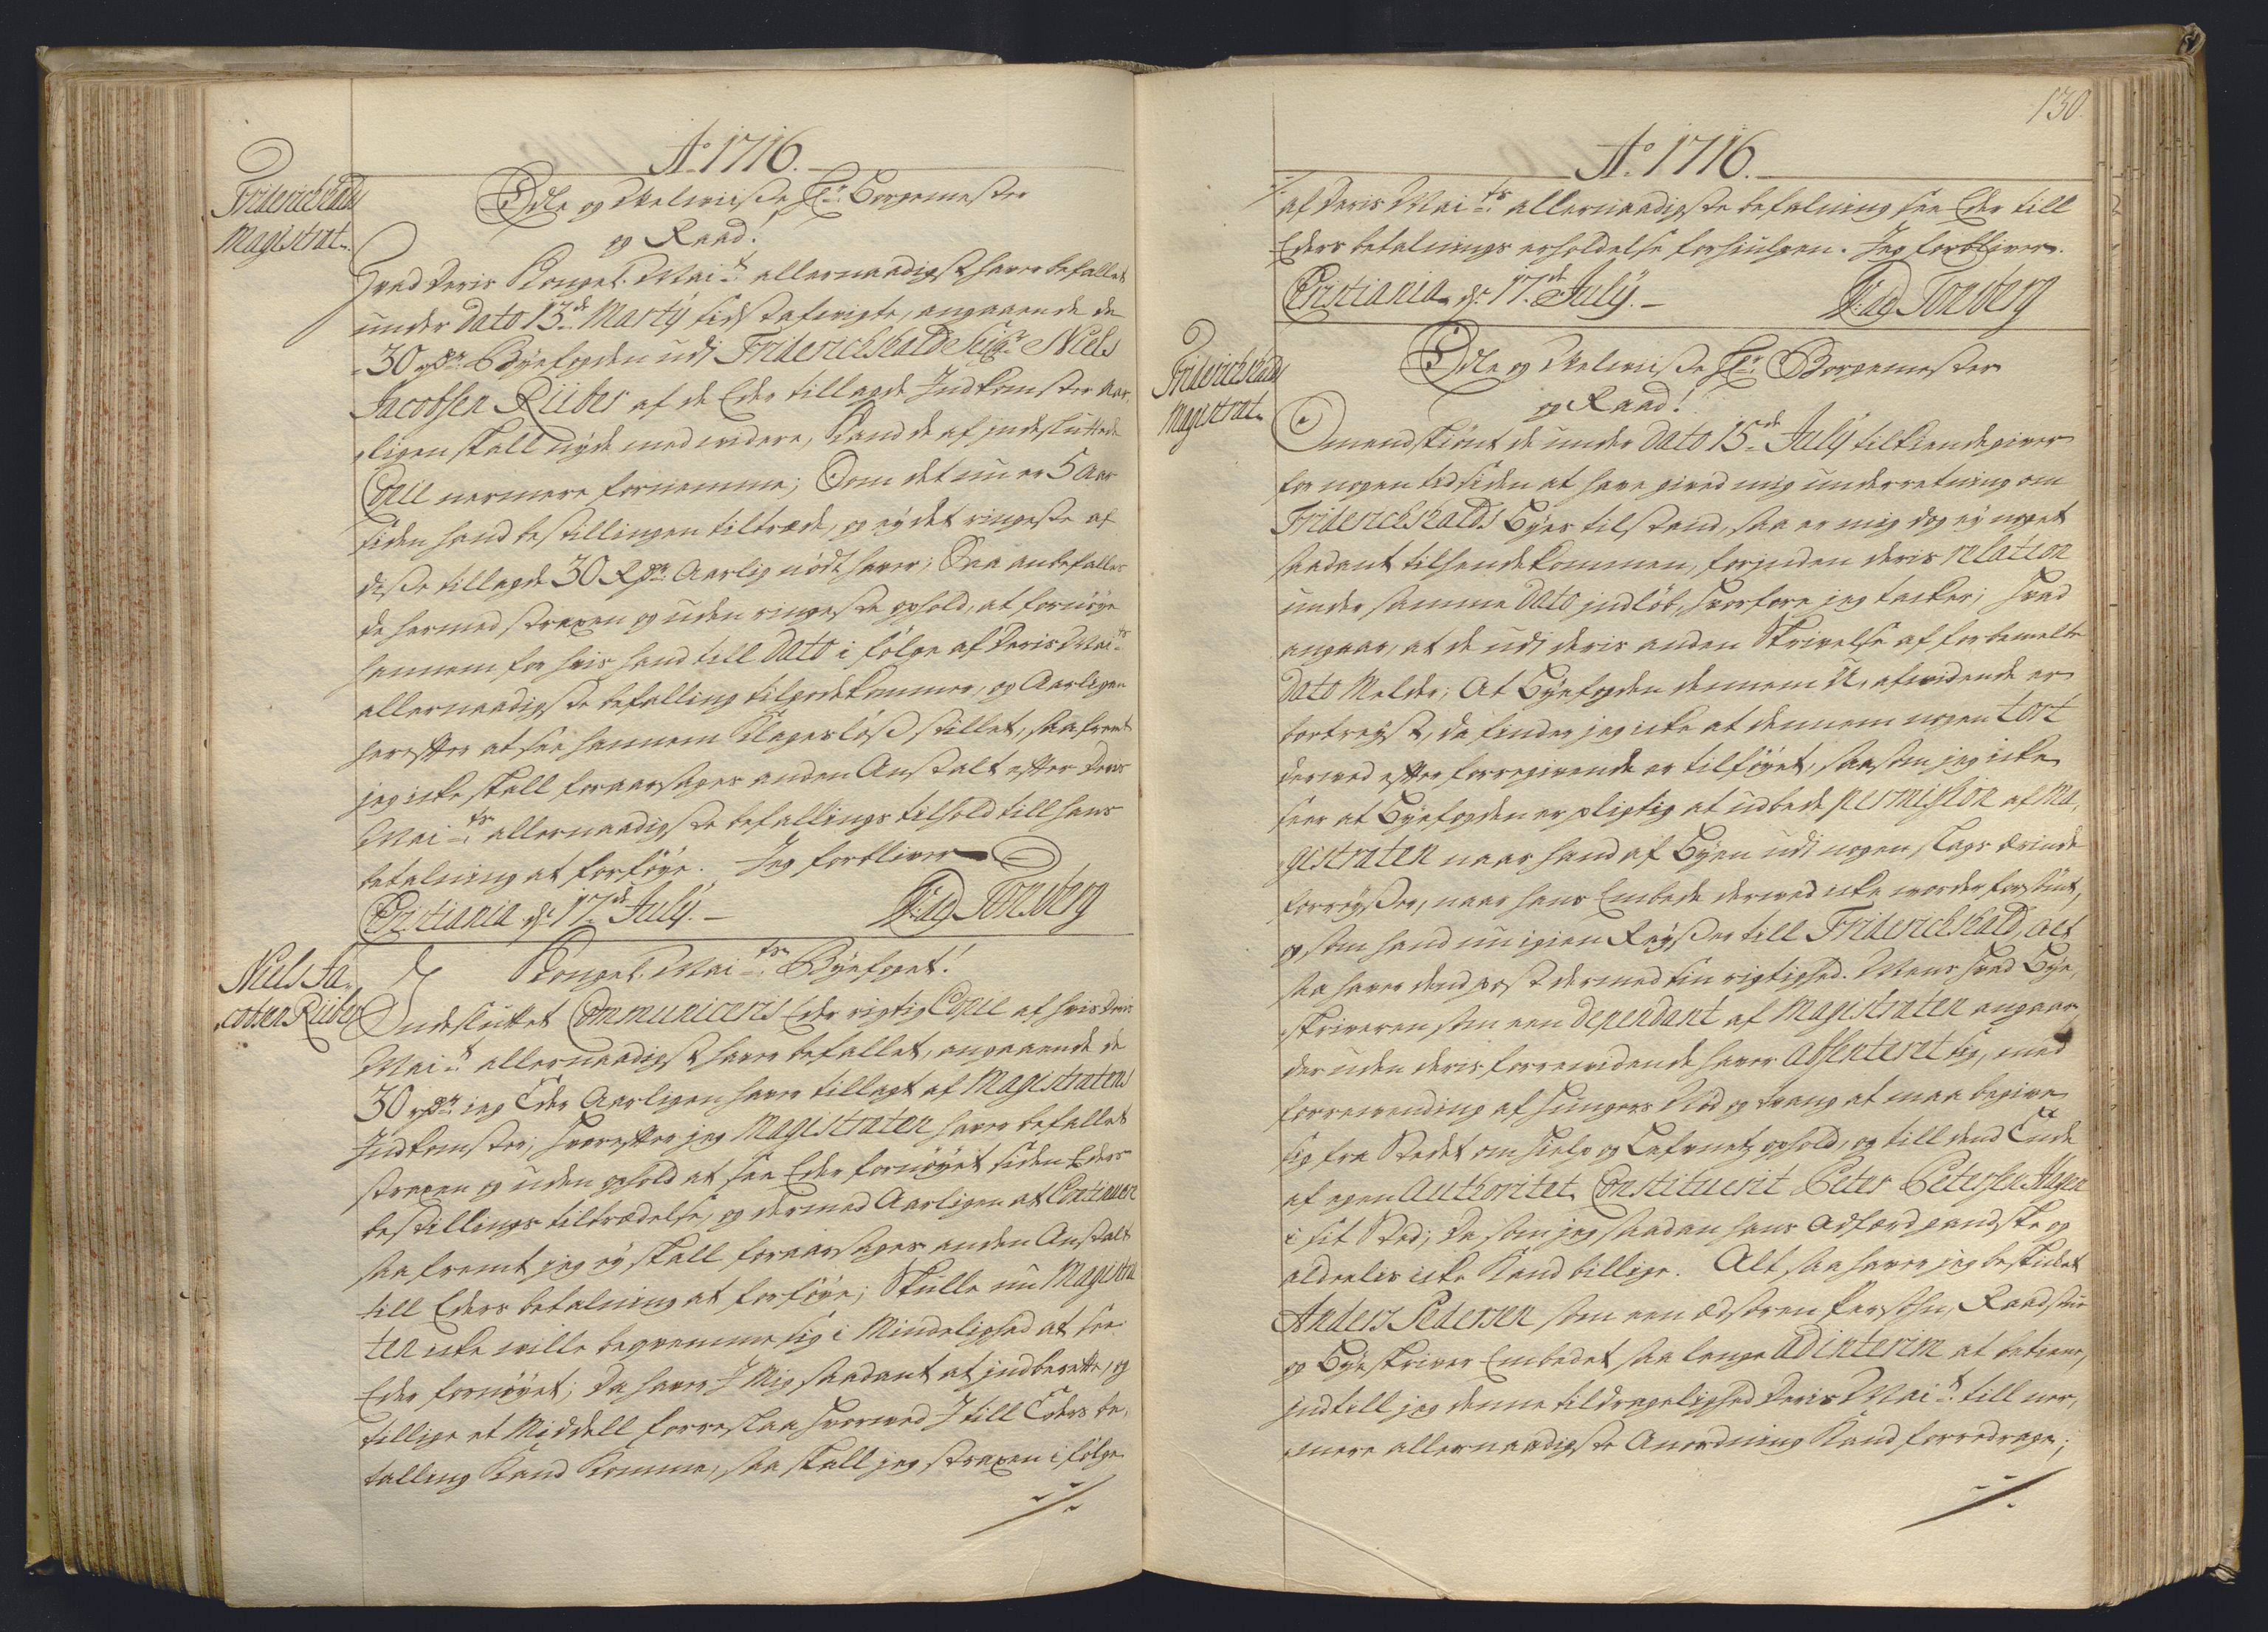 Ao 1716.
Friderichshalds
Magistrat.
Edle og Velviise Hr: Borgemester
og Raad!
Hvad Deris Kongel. Mait: allernaadigst haver befallet
under Dato 13de Marty sidst afvigte, angaaende de
30 rdr: Byefogden udj Friderichshald Sigr: Niels
Jacobsen Riiber af de Eder tillagde Indkomster aar,
ligen skall nyde med videre, Kand de af indesluttede
Copie nermere fornemme; Som det nu er 5 Aar
siden hand bestillingen tiltræde, og ey det ringeste af
diße tillagde 30 Rdr: Aarlig nødt haver; Saa anbefalles
de hermed straxen og uden ringeste ophold, at fornøye
hannem for hvis hand till Dato i følge af Deris Maits:
allernaadigste befalling tilgodekommer, og Aarligen
herefter at see hannem Klagesløß stillet, saafremt
jeg icke skall foraarsages anden Anstalt efter Deris
Maits: allernaadigste befallings tilhold till hans
betalning at forføye. Jeg forbliver
Christiania d: 17de July.
V: ag Tonsberg
Niels Ja,
cobsen Riiber
Kongel. Maits: Byefoget!
Indesluttet Communiceris Eder rigtig Copie af hvis Deris
Mait: allernaadigst haver befallet, angaaende de
30 rdr: jeg Eder Aarligen haver tillagt af Magistratens
Indkomster; hvorefter jeg Magistraten haver befallet
straxen og uden ophold at see Eder fornøyet siden Eders
bestillings tiltrædelse, og dermed Aarligen at Continuere
saafremt jeg ey skall foraarsages anden Anstalt
till Eders betalning at forføye; Skulle nu Magistra
ten icke ville beqvemme sig i Mindelighed at see
Eder fornøyet; Da haver I Mig saadant at indberette, og
tillige et Middell forreslaa hvorved I till Eders be,
talling Kand Komme, saa skall jeg straxen i følge
./.
130.
Ao 1716.
./.
af Deris Maits: allernaadigste befalning see Eder till
Eders betalnings erholdelse forhiulpen. Jeg forbliver.
Christiania d: 17de July.
V: ag Tonsberg
Friderichshalds
Magistrat.
Edle og Velviise Hr: Borgemester
og Raad!
Omendskiønt de under Dato 15de July tilkiendegiver
for nogen tid siden at have gived mig underretning om
Friderichshalds Byes tilstand, saa er mig dog ey noget
saadant tilhendekommen, forinden deris relation
under samme Dato indløb, hvorfore jeg tacker; hvad
angaar, at de udj deris anden Skrivelse af forbemelte
Dato Melder; At Byefogden dennem U-afvidende er
bortreyst, da finder jeg icke at dennem nogen tort
derved efter forregivende er tilføyet, saasom jeg icke
seer at Byefogden er pligtig at udbede permission af Ma,
gistraten naar hand af Byen udj nogen slags Ærinde
forreyßer, naar hans Embede derved icke vorder forsømt,
og som hand nu igien Reyßer till Friderichshald, Alt
saa haver dend post dermed sin rigtighed. Mens hvad Bye,
skriveren som een dependant af Magistraten angaar,
der uden deris forrevidende haver absenteret sig, med
forrevending af hungers Nød og trang at maa begive
sig fra Stedet om hielp og Lefnets ophold, og till dend Ende
af egen Authoritet Constituerit Peter Petersen Hagen
i sit Sted; Da som jeg saadan hans Adfærd gandske og
aldeelis icke Kand billige. Alt saa haver jeg beskicket
Anders Pedersen som een ædstoren Persohn, Raadstue
og Byeskriver Embedet saa lenge ad interim at betiene,
indtill jeg denne tildragelighed Deris Mait: till ner,
mere allernaadigste Anordning Kand forredrage;
./.